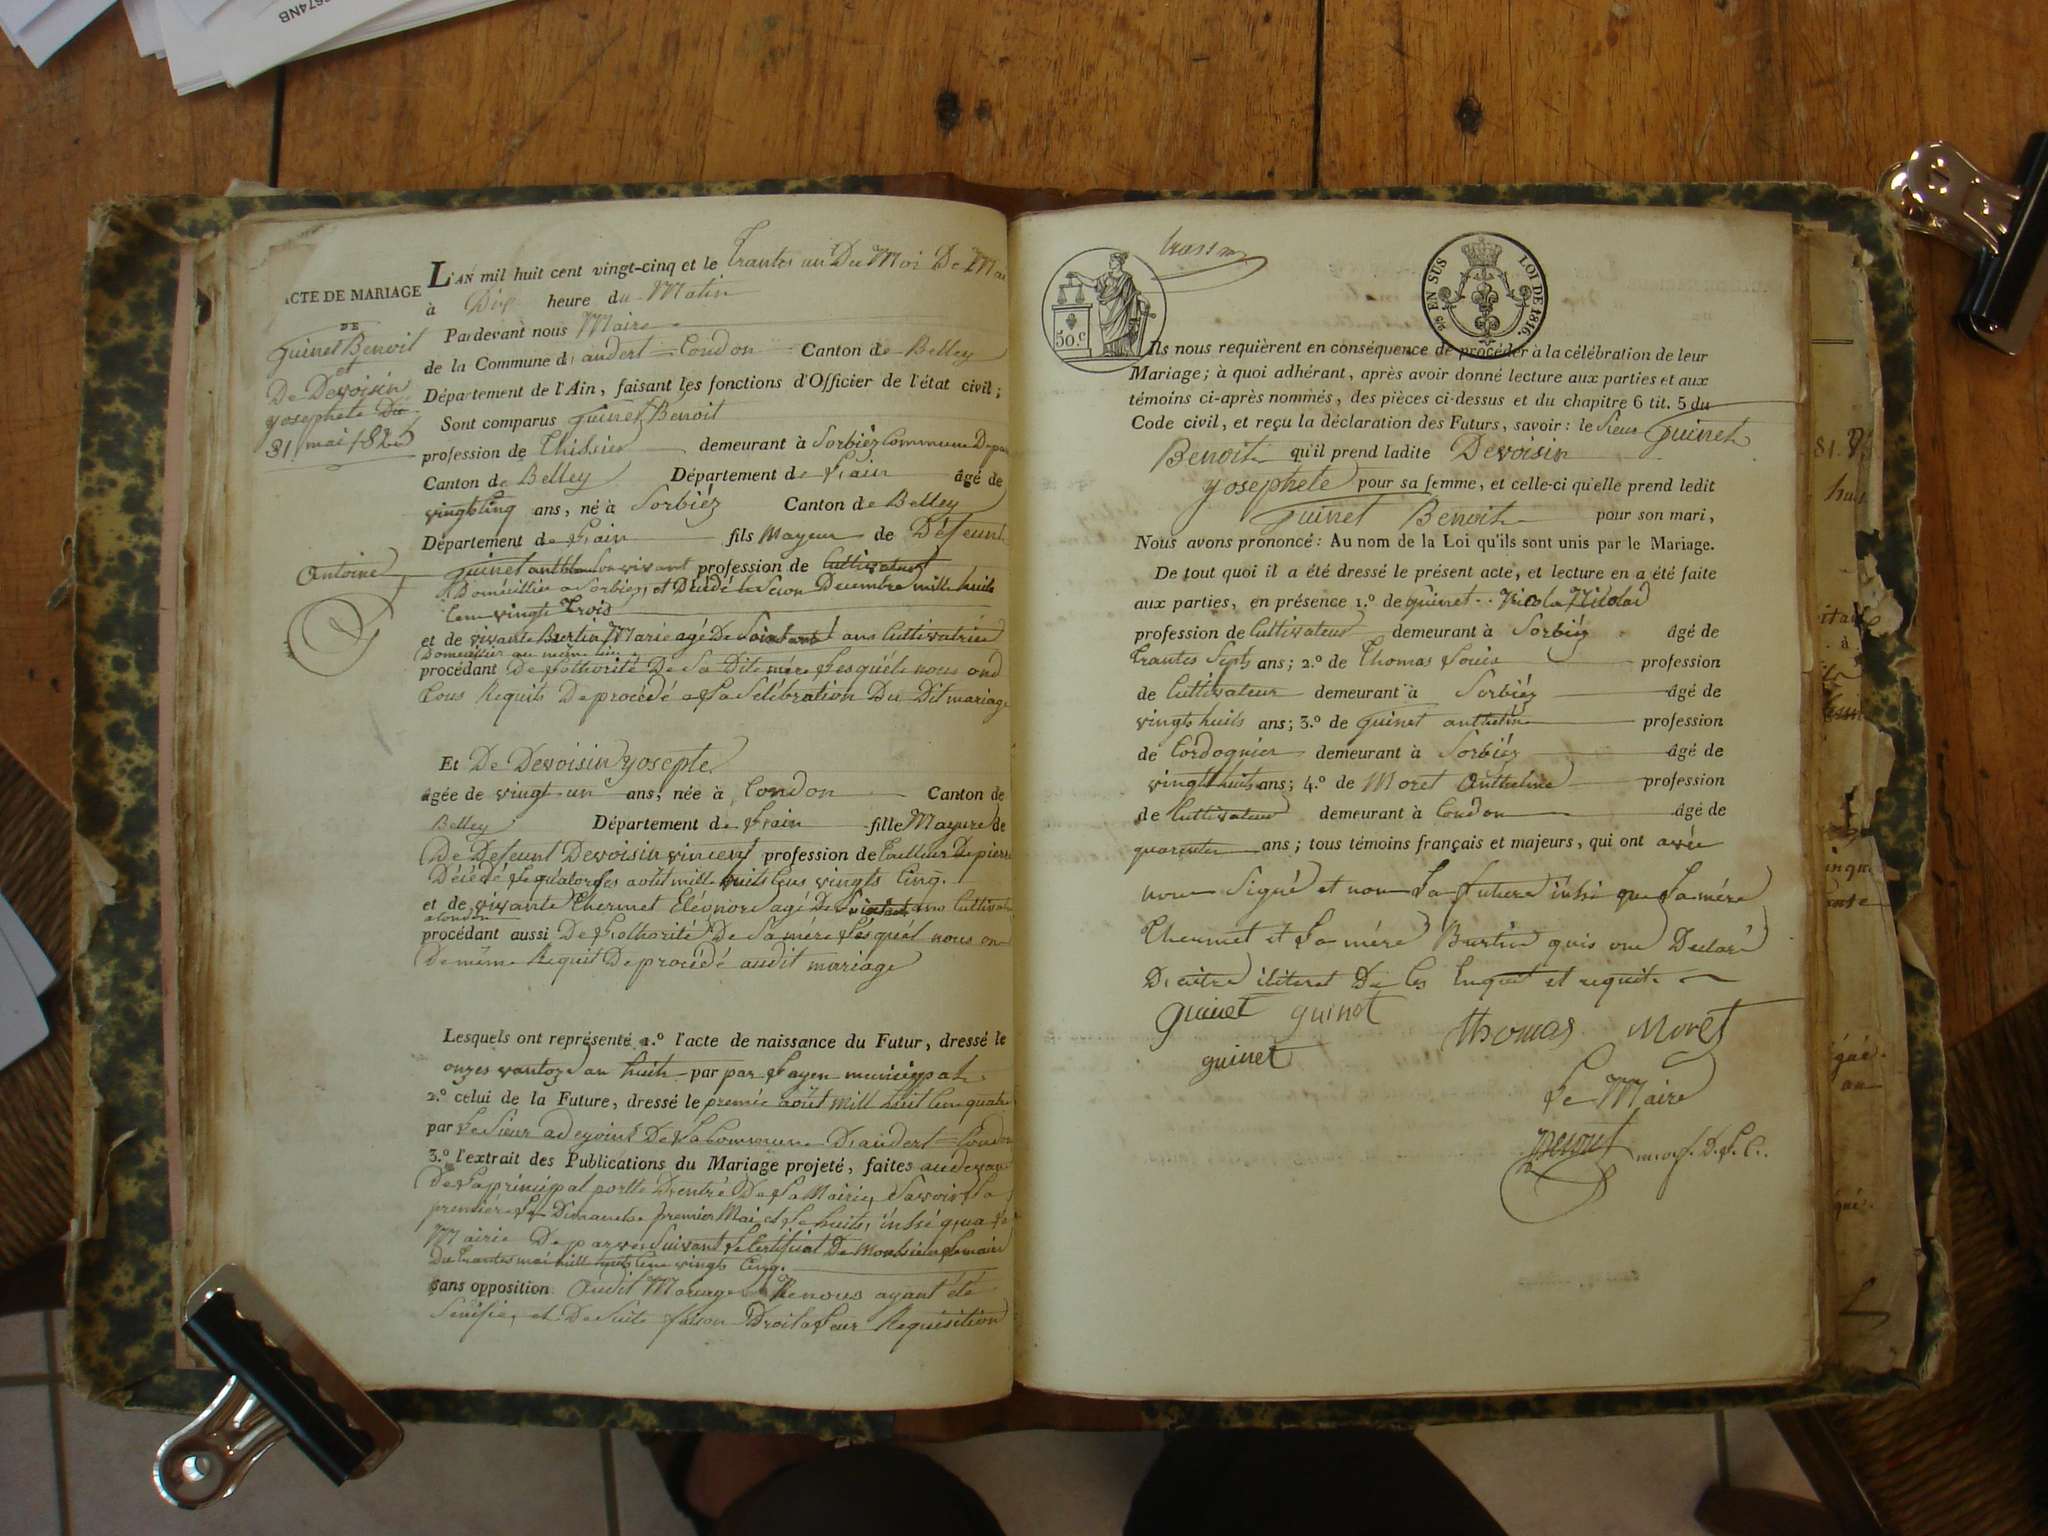 6674NB
ACTE DE MARIAGE
DE
Guinet Benoit
et
De Devoisin
yosephete Du
31 mai 1825
L'AN mil huit cent vingt-cinq et le Trantes un Du Moi De Mai
à Dix heure du Matin
Pardevant nous Maire
de la Commune d'andert = Condon Canton de Belley
Département de l'Ain, faisant les fonctions d'Officier de l'état civil;
Sont comparus Guinet Benoit
profession de Thissier demeurant à Sorbiéz Commune De par
Canton de Belley Département de L'ain âgé de
vingt cinq ans, né à Sorbiéz Canton de Belley
Département de L'ain fils Mayeur de Défeunt
Antoine
Guinet vivant profession de Cultivateur
Doméillier a Sorbiez, et Décédé Decembre mille huits
Cens vingts Trois
et de vivante Burtin Marie agé De Soixante ans Cultivatrice
Domeillier au même lieu
procédant De Lothorité De Sa Dite mére Lesquéls nous ond
tous Requits De procédé a La Sélébration Du Dit mariage
Et De Devoisin yosepte
âgée de vingt un ans, née à Condon Canton de
Belley Département de L'ain fille Mayure de
De Defeunt Devoisin vincent profession de Tailleur De pierre
Décédé Le quatorzes août mille huits Cens vingts Cinq.
et de vivante Thermet Eléonore agé De ans Cultivat
a Condon
procédant aussi De Lothorité De Sa mere Lesquél nous on
De même Requit De procédé audit mariage
Lesquels ont représenté 1.º l'acte de naissance du Futur, dressé le
onzes vantoze an huit par par Layen municipal
2.º celui de la Future, dressé le premié août mill huit Cen quatre
par Le Sieur adejoint De La Commune D'andert = Condon
3.º l'extrait des Publications du Mariage projeté, faites au devan
De La principal portte D'entré De La Mairie, Savoir La
premiére Le Dimanche premier Mai et Le huits, insi qua La
Mairie De parves Suivant Le Certificat De Monsieur Lemaire
Du Trantes mai mille huits Cens vingts Cinq.
sans opposition Audit Mariage Ne nous ayant été
Sinifié, et De Suite faison Droit a Leur Requisition
50.c
EN SUS LOI DE 1816.
Ils nous requièrent en conséquence de procéder à la célébration de leur
Mariage; à quoi adhérant, après avoir donné lecture aux parties et aux
témoins ci-après nommés, des pièces ci-dessus et du chapitre 6 tit. 5 du
Code civil, et reçu la déclaration des Futurs, savoir: le Sieur Guinet
Benoit qu'il prend ladite Devoisin
yosephete pour sa femme, et celle-ci qu'elle prend ledit
Guinet Benoit pour son mari,
Nous avons prononcé: Au nom de la Loi qu'ils sont unis par le Mariage.
De tout quoi il a été dressé le présent acte, et lecture en a été faite
aux parties, en présence 1.º de guinet Nicolas
profession de Cultivateur demeurant à Sorbiéz âgé de
Trantes Septs ans; 2.º de Thomas Louis profession
de Cultivateur demeurant à Sorbiéz âgé de
vingts huits ans; 3.º de Guinet anthelme profession
de Cordognier demeurant à Sorbiéz âgé de
vingts huits ans; 4.º de Moret Anthelme profession
de Cultivateur demeurant à Condon âgé de
quarente ans; tous témoins français et majeurs, qui ont avée
nous Signé et non La future insi que La mére
Thermet et La mére Burtin quis one Declaré
D'aitre iliteret De Ces Enquit et requit.
guinet guinet Thomas Moret
guinet
Le Maire